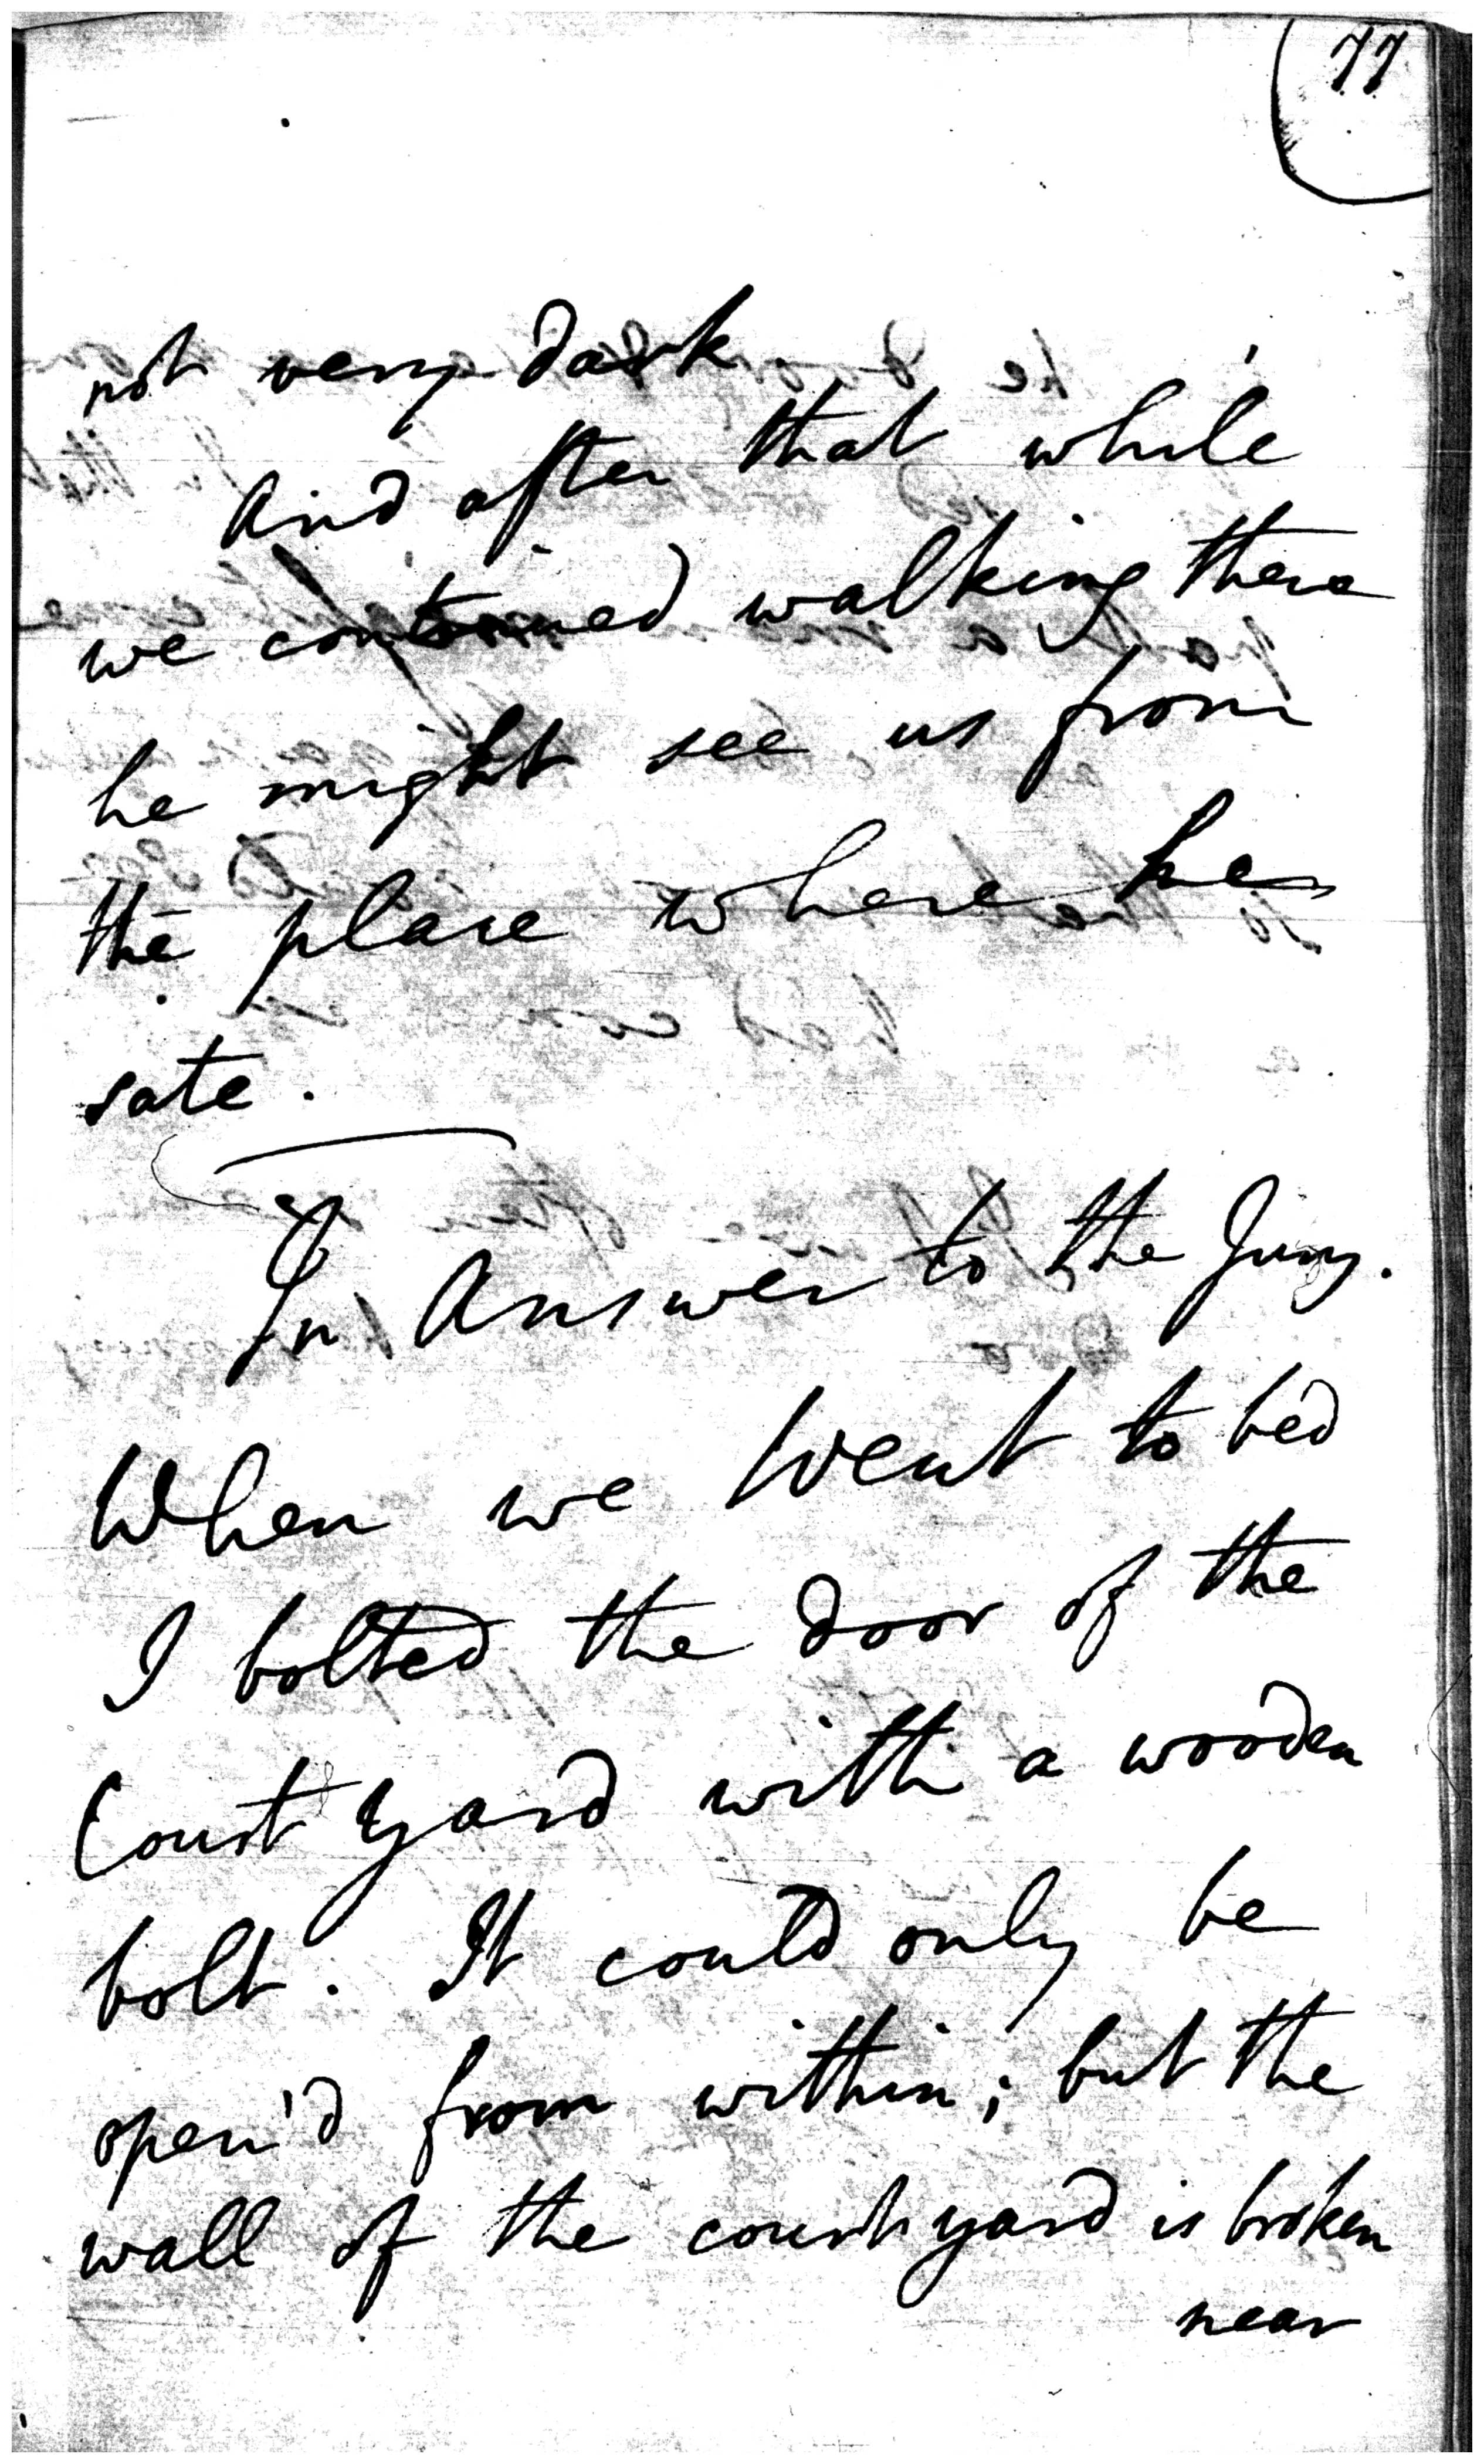 77
not very dark.
And after that while
we continued walking there
he might see us from
the place where he
sate.
In Answer to the Jury.
When we went to bed
I bolted the door of the
Court Yard with a wooden
bolt. It could only be
open'd from within; but the
wall of the court yard is broken
near